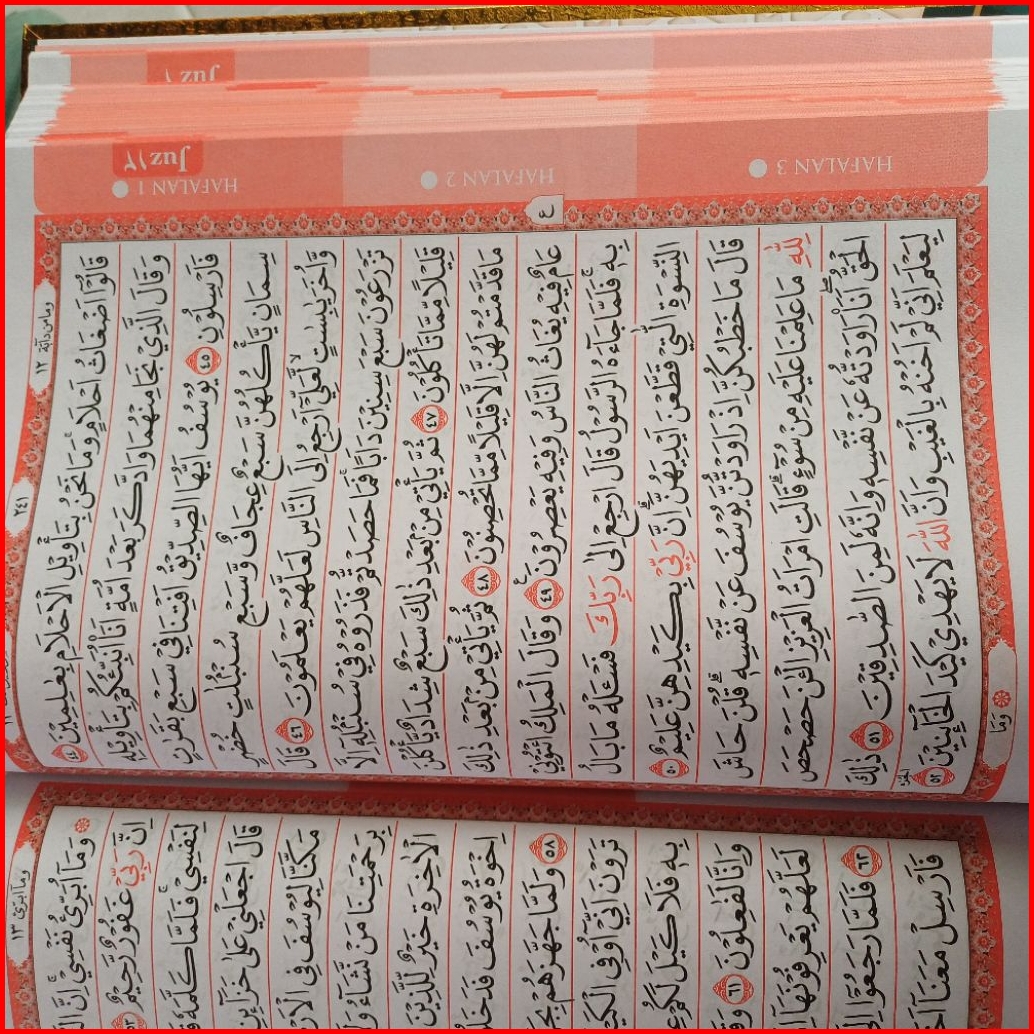 Juz ١٢
HAFALAN 1
HAFALAN 2
HAFALAN 3
٤
وما من دآبة ١٢
٢٤١
قَالُوْٓا اَضْغَاثُ اَحْلَامٍۚ وَمَا نَحْنُ بِتَأْوِيْلِ الْاَحْلَامِ بِعٰلِمِيْنَ ٤٤
وَقَالَ الَّذِيْ نَجَا مِنْهُمَا وَادَّكَرَ بَعْدَ اُمَّةٍ اَنَا۠ اُنَبِّئُكُمْ بِتَأْوِيْلِهٖ
فَاَرْسِلُوْنِ ٤٥ يُوْسُفُ اَيُّهَا الصِّدِّيْقُ اَفْتِنَا فِيْ سَبْعِ بَقَرٰتٍ
سِمَانٍ يَّأْكُلُهُنَّ سَبْعٌ عِجَافٌ وَّسَبْعِ سُنْۢبُلٰتٍ خُضْرٍ
وَّاُخَرَ يٰبِسٰتٍۙ لَّعَلِّيْٓ اَرْجِعُ اِلَى النَّاسِ لَعَلَّهُمْ يَعْلَمُوْنَ ٤٦ قَالَ
تَزْرَعُوْنَ سَبْعَ سِنِيْنَ دَاَبًاۚ فَمَا حَصَدْتُّمْ فَذَرُوْهُ فِيْ سُنْۢبُلِهٖٓ اِلَّا
قَلِيْلًا مِّمَّا تَأْكُلُوْنَ ٤٧ ثُمَّ يَأْتِيْ مِنْۢ بَعْدِ ذٰلِكَ سَبْعٌ شِدَادٌ يَّأْكُلْنَ
مَا قَدَّمْتُمْ لَهُنَّ اِلَّا قَلِيْلًا مِّمَّا تُحْصِنُوْنَ ٤٨ ثُمَّ يَأْتِيْ مِنْۢ بَعْدِ ذٰلِكَ
عَامٌ فِيْهِ يُغَاثُ النَّاسُ وَفِيْهِ يَعْصِرُوْنَ ٤٩ وَقَالَ الْمَلِكُ ائْتُوْنِيْ
بِهٖۚ فَلَمَّا جَاۤءَهُ الرَّسُوْلُ قَالَ ارْجِعْ اِلٰى رَبِّكَ فَسْـَٔلْهُ مَا بَالُ
النِّسْوَةِ الّٰتِيْ قَطَّعْنَ اَيْدِيَهُنَّۗ اِنَّ رَبِّيْ بِكَيْدِهِنَّ عَلِيْمٌ ٥٠
قَالَ مَا خَطْبُكُنَّ اِذْ رَاوَدْتُّنَّ يُوْسُفَ عَنْ نَّفْسِهٖۗ قُلْنَ حَاشَ
لِلّٰهِ مَا عَلِمْنَا عَلَيْهِ مِنْ سُوْۤءٍۗ قَالَتِ امْرَاَتُ الْعَزِيْزِ الْـٰٔنَ حَصْحَصَ
الْحَقُّۖ اَنَا۠ رَاوَدْتُّهٗ عَنْ نَّفْسِهٖ وَاِنَّهٗ لَمِنَ الصّٰدِقِيْنَ ٥١ ذٰلِكَ
لِيَعْلَمَ اَنِّيْ لَمْ اَخُنْهُ بِالْغَيْبِ وَاَنَّ اللّٰهَ لَا يَهْدِيْ كَيْدَ الْخَاۤىِٕنِيْنَ ٥٢
۞ وَمَا
وما ابرئ ١٣
۞ وَمَآ اُبَرِّئُ نَفْسِيْۚ اِنَّ
اِنَّ رَبِّيْ غَفُوْرٌ رَّحِيْمٌ ٥٣
لِنَفْسِيْۚ فَلَمَّا كَلَّمَهٗ
قَالَ اجْعَلْنِيْ عَلٰى خَزَاۤىِٕنِ
مَكَّنَّا لِيُوْسُفَ فِى
بِرَحْمَتِنَا مَنْ نَّشَاۤءُ
الْاٰخِرَةِ خَيْرٌ لِّلَّذِيْنَ
اِخْوَةُ يُوْسُفَ
٥٨ وَلَمَّا جَهَّزَهُمْ
تَرَوْنَ اَنِّيْٓ اُوْفِى
بِهٖ فَلَا كَيْلَ لَكُمْ
وَاِنَّا لَفٰعِلُوْنَ ٦١
لَعَلَّهُمْ يَعْرِفُوْنَهَآ
٦٢ فَلَمَّا رَجَعُوْٓا
فَاَرْسِلْ مَعَنَآ